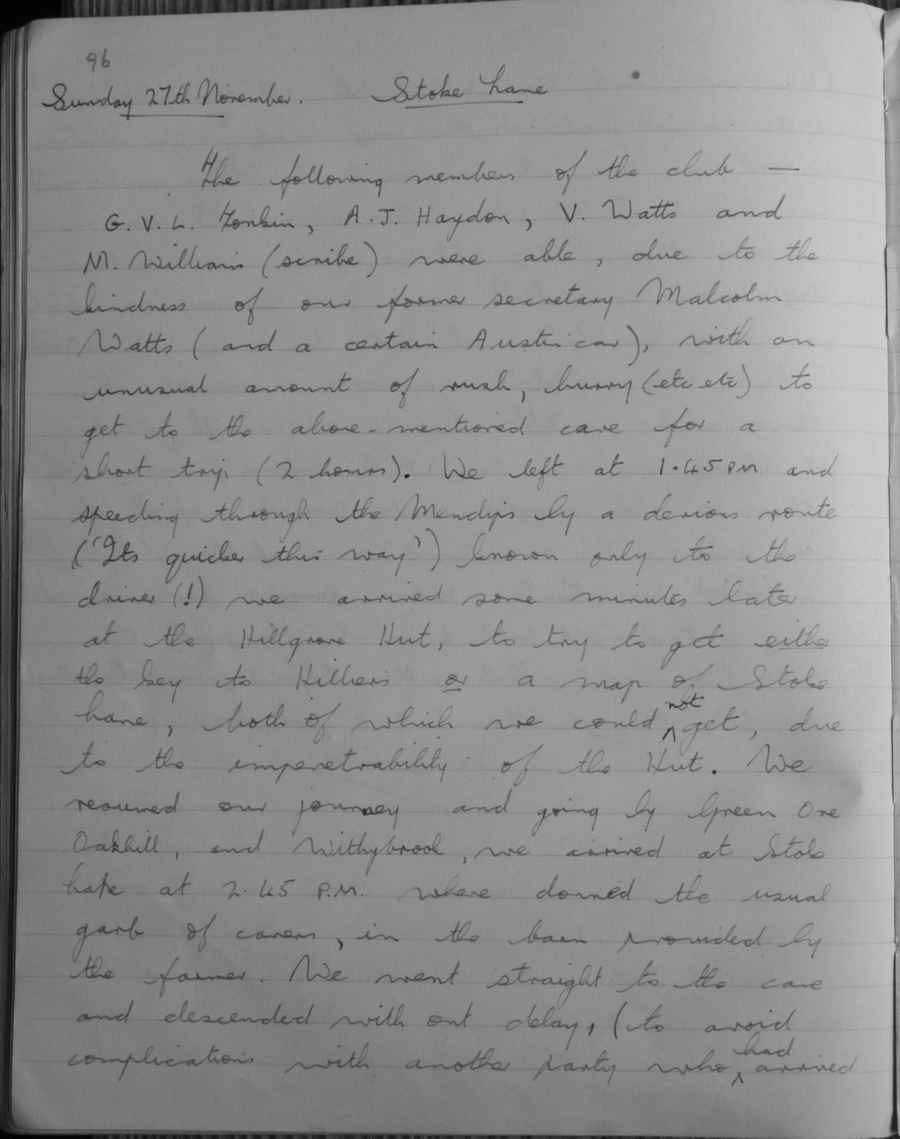 96
Sunday 27th November. Stoke Lane
The following members of the club —
G. V. L. Tonkin, A. J. Haydon, V. Watts and
M. Williams (scribe) were able, due to the
kindness of our former secretary Malcolm
Watts (and a certain Austin car), with an
unusual amount of rush, hurry (etc etc) to
get to the above-mentioned cave for a
short trip (2 hours). We left at 1.45 PM and
speeding through the Mendips by a devious route
("Its quicker this way") known only to the
driver (!) we arrived some minutes later
at the Hillgrove Hut, to try to get either
the key to Hilliers or a map of Stoke
Lane, both of which we could not get, due
to the impenetrability of the Hut. We
resumed our journey and going by Green Ore
Oakhill, and Withybrook, we arrived at Stoke
Lane at 2.45 P.M. where donned the usual
garb of cavers, in the barn provided by
the farmer. We went straight to the cave
and descended with out delay, (to avoid
complications with another party who had arrived